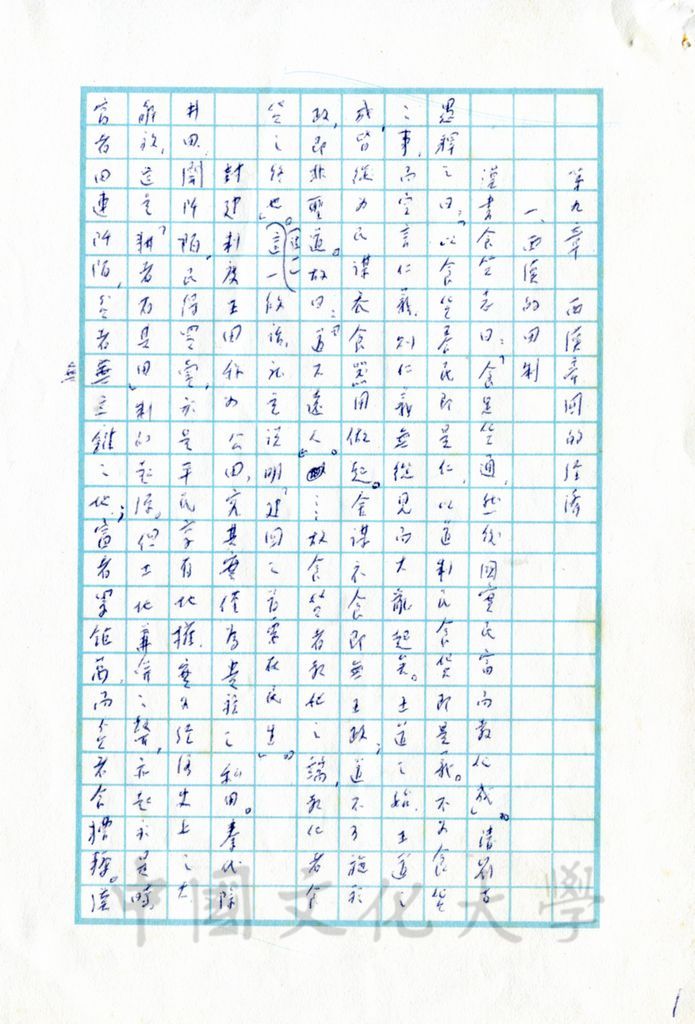 第九章 西漢帝國的經濟
一、西漢的田制
漢書食貨志曰：「食足貨通，然後國實民富而教化成」。清劉
愚釋之曰：「以食貨養民即是仁，以道制民食貨即是義。不為食貨
之事，而空言仁義，則仁義無從見而大亂起矣。王道之始，王道之
成，皆從為民謀衣食器用做起。舍謀衣食即無王政；道不可施於
政，即非聖道。故曰：『道不遠人』。故食貨者教化之端，教化者食
貨之終也」。這一段話，就是說明「建國之首要在民生」。
封建制度王田雖為公田，究其實僅為貴族之私田。秦代除
井田，開阡陌，民得買賣，於是平民享有地權，實為經濟史上之大
解放，這是「耕者有其田」制的起源。但土地兼併之弊，亦起於是時，
富者田連阡陌，貧者無立錐之地；富者累鉅萬，而貧者食糟糠。漢
無
1
中國文化大學